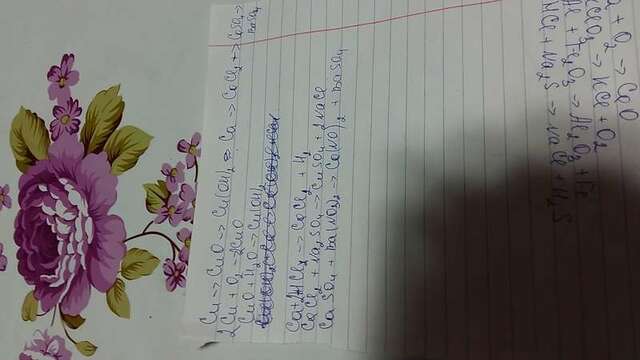 Cu → CuO → Cu(OH)2 Ca → CaCl2 → CaSO4 → BaSO4
2Cu + O2 → 2CuO
CuO + H2O → Cu(OH)2
Ca + 2HCl2 → CaCl2 + H2
CaCl2 + Na2SO4 → CuSO4 + 2NaCl
CaSO4 + Ba(NO3)2 → Ca(NO)2 + BaSO4
+ O2 → CaO
→ KCl + O2
Al + Fe2O3 → Al2O3 + Fe
HCl + Na2S → NaCl + H2S